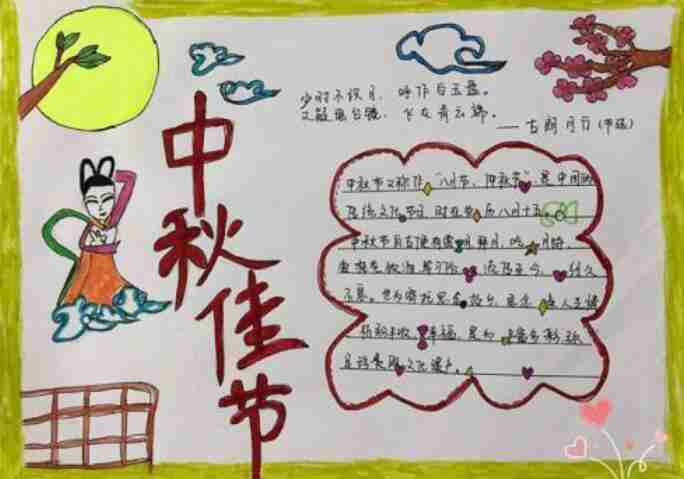 中秋佳节
少时不识月,呼作白玉盘。
又疑瑶台镜,飞在青云端。
——古朗月行(节选)
中秋节又称作“八月节、仲秋节”是中国的
传统文化节日,时在农历八月十五。
中秋节自古便有祭月、赏月、吃月饼、
饮 等习俗,流传至今,经久
不息。也为寄托思念故乡,思念亲人之情
祈盼丰收、幸福,是为丰富多彩、弥
足珍贵的文化遗产。